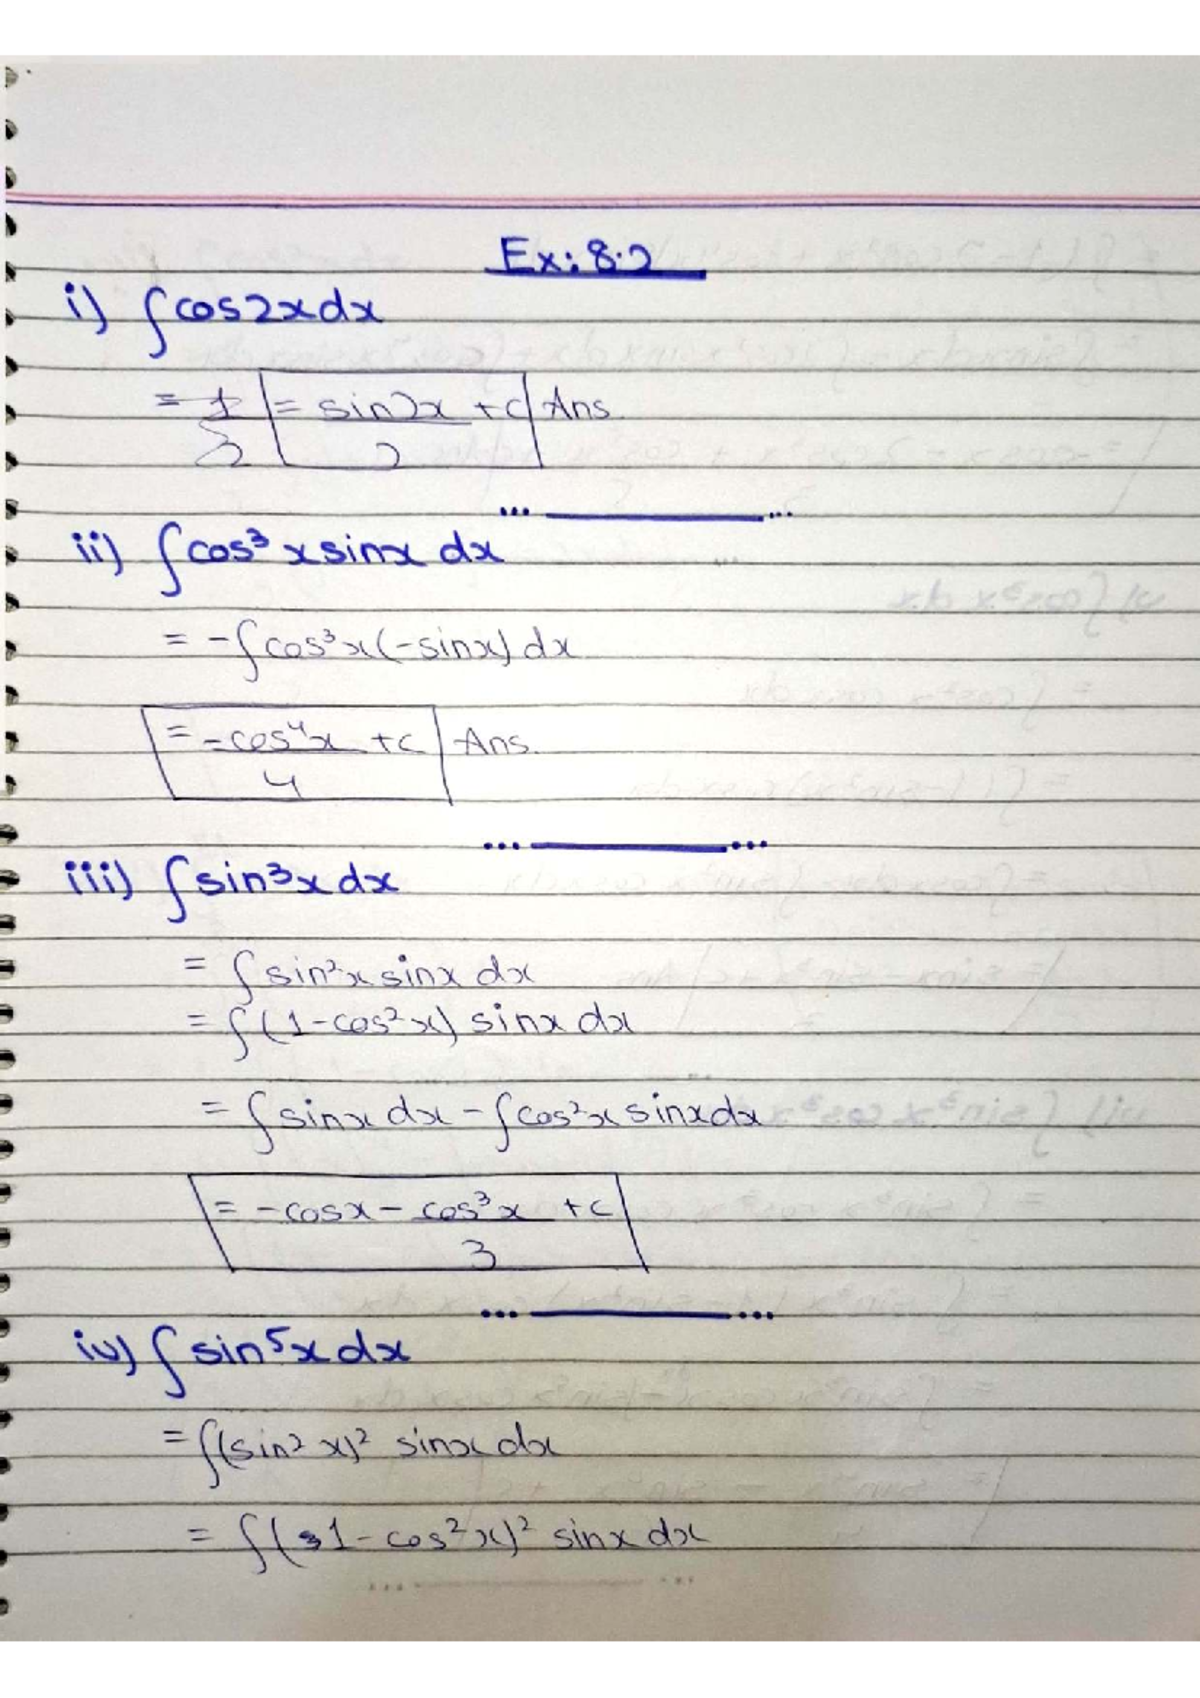 Ex: 8.2
i) ∫cos2xdx
= sin2x/2 + c Ans.
ii) ∫cos³ x sinx dx
= -∫cos³x(-sinx) dx
= -cos⁴x/4 + c Ans.
iii) ∫sin³x dx
= ∫sin²x sinx dx
= ∫(1-cos²x) sinx dx
= ∫sinx dx - ∫cos²x sinxdx
= -cosx - cos³x/3 + c
iv) ∫sin⁵x dx
= ∫(sin² x)² sinx dx
= ∫(1-cos²x)² sinx dx